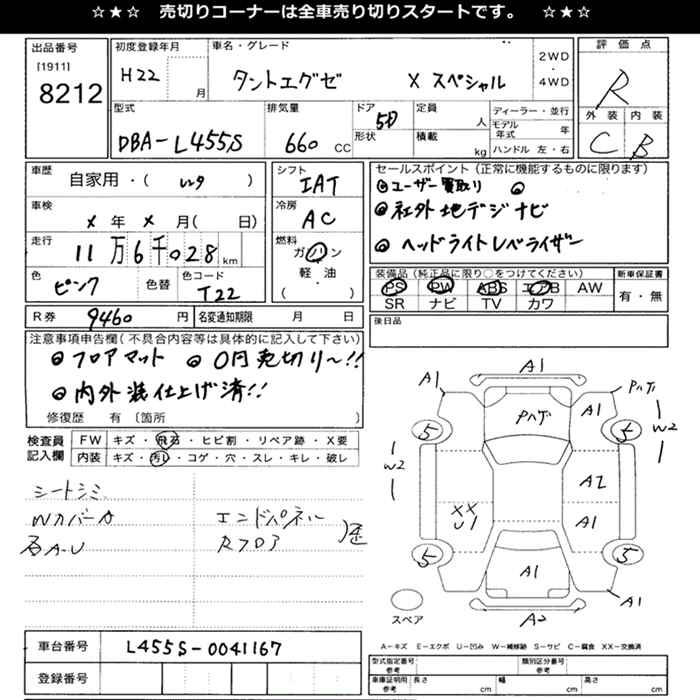 ☆★☆ 売切りコーナーは全車売り切りスタートです。 ☆★☆
出品番号
[1911]
8212
初度登録年月
H22 月
車名・グレード
タントエグゼ X スペシャル
2WD
・
4WD
評価点
R
外装 内装
C B
型式
DBA-L455S
排気量
660 CC
ドア
5D
形状
定員
人
積載
kg
ディーラー・並行
モデル年式 年
ハンドル 左・右
車歴
自家用・( )
車検
X 年 X 月( 日)
走行
11万6千028km
色
ピンク
色替
色コード
T22
シフト
IAT
冷房
AC
燃料
ガソリン
軽・油
( )
セールスポイント(正常に機能するものに限ります)
◎ユーザー買取り ◎
◎社外地デジナビ
◎ヘッドライトレベライザー
装備品(純正品に限り○をつけてください)
PS PW ABS エアB AW
SR ナビ TV カワ
新車保証書
有・無
R券 9460 円
名変通知期限 月 日
後日品
注意事項申告欄(不具合内容等は具体的に記入して下さい)
◎フロアマット ◎0円売切り〜!!
◎内外装仕上げ済!!
修復歴 有 〔箇所
検査員
記入欄
FW キズ・飛石・ヒビ割・リペア跡・X要
内装 キズ・汚レ・コゲ・穴・スレ・キレ・破レ
シートシミ
Wカバーカ エンドパネル
各A-U Rフロア 歴
A1
A1 Pハゲ
Pハゲ A1
5 5
W2 W2
A2
XX
U1 A1
5 5
A1
A1
スペア A2
A-キズ E-エクボ U-凹み W-補修跡 S-サビ C-腐食 XX-交換済
車台番号 L455S-0041167
登録番号
型式指定番号
参考
類別区分番号
参考
車庫証明用
参考
長さ cm 幅 cm 高さ cm